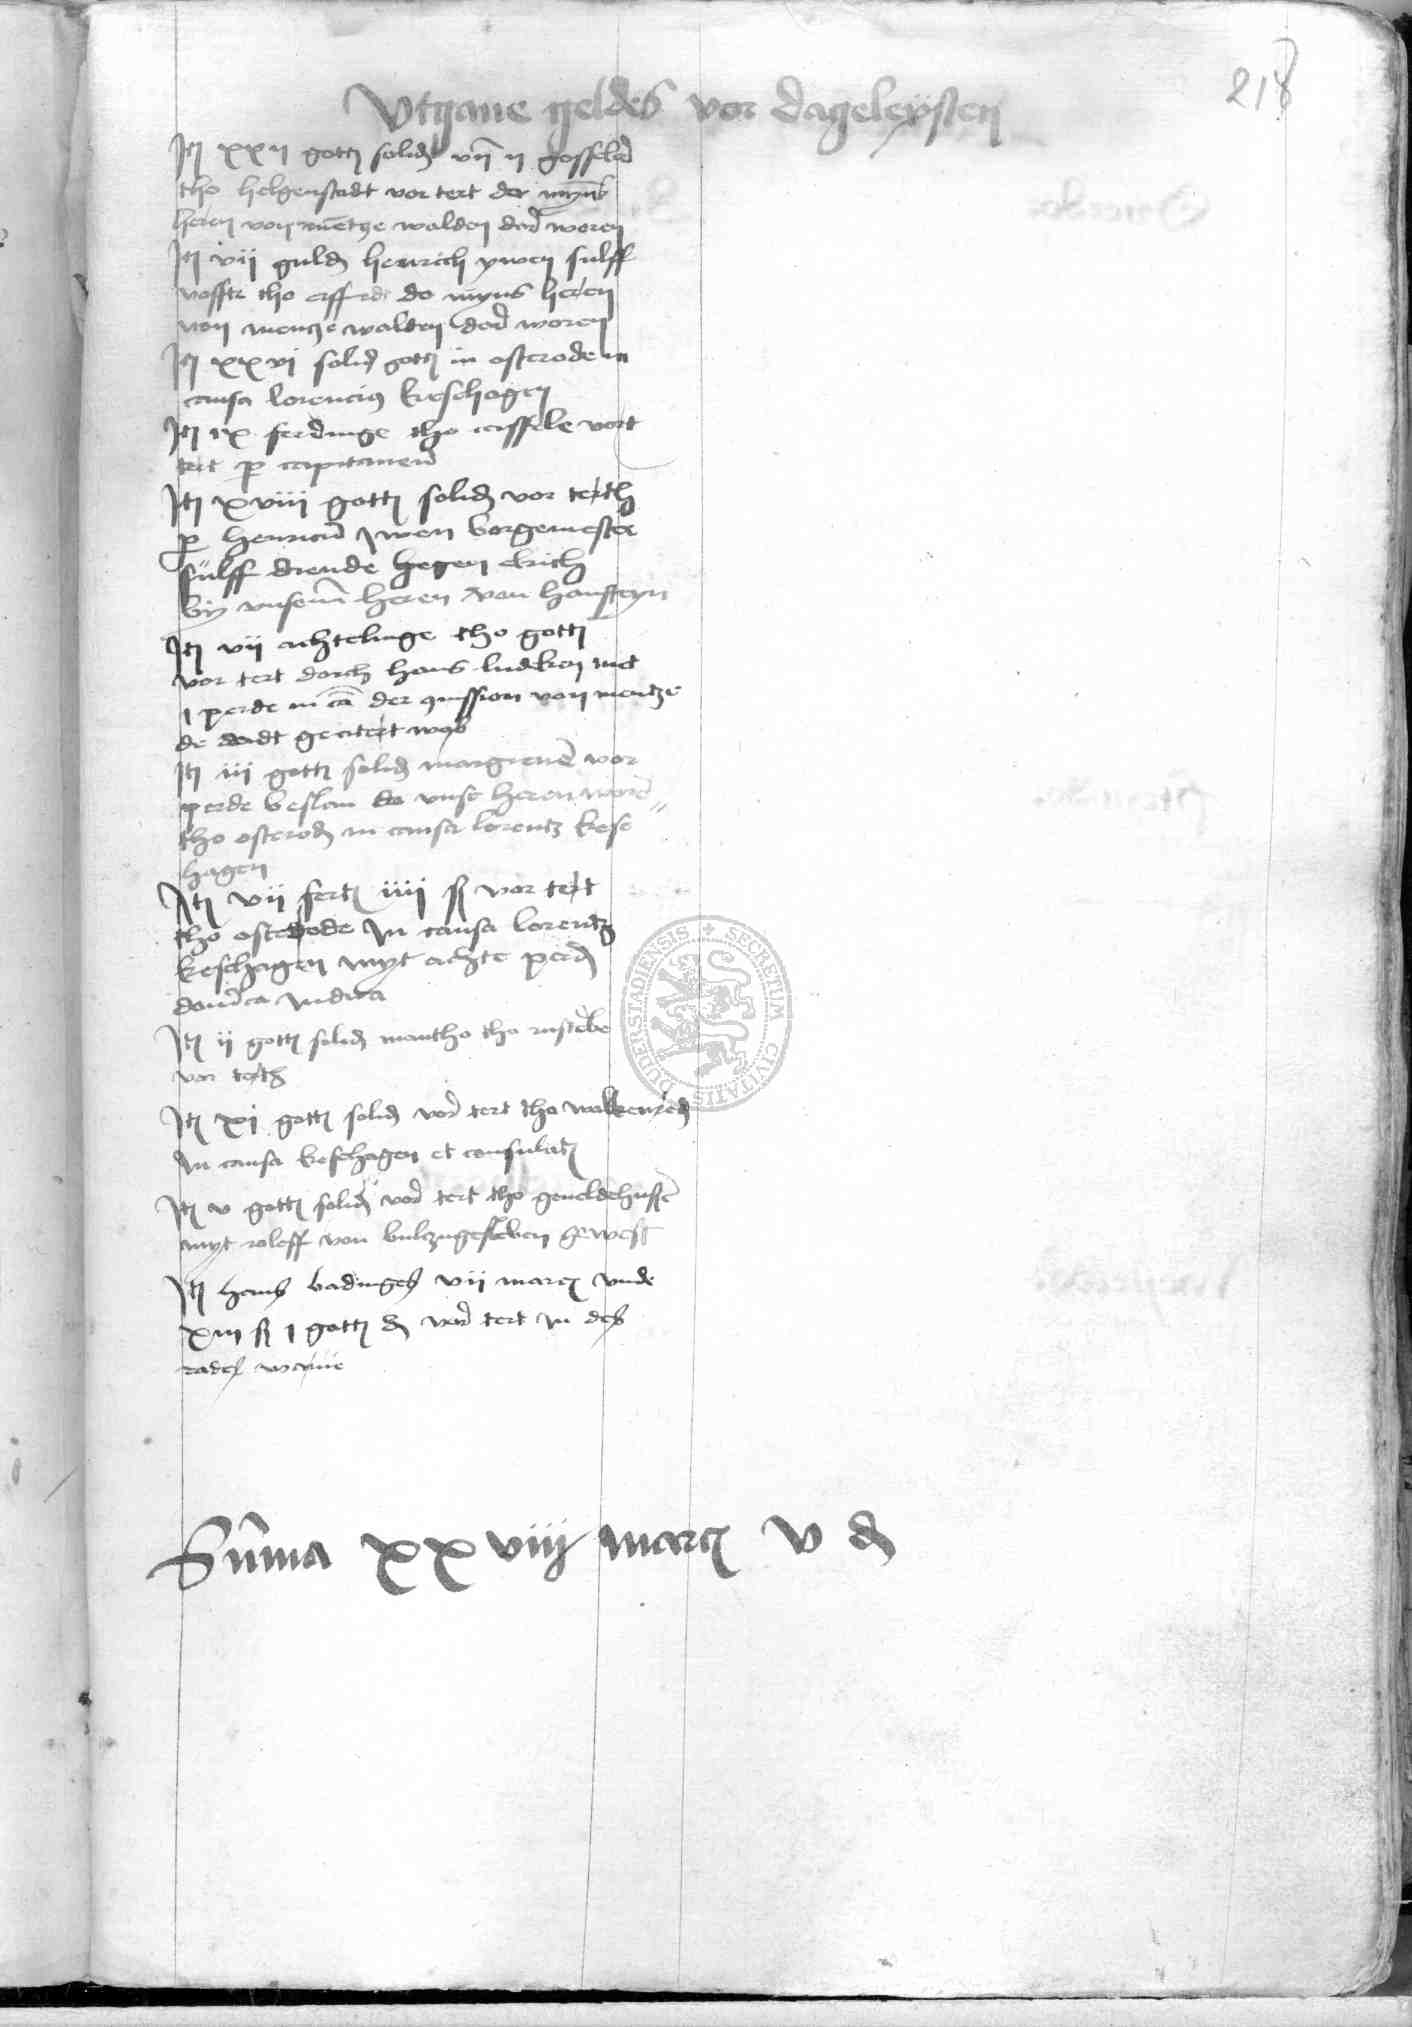 218
Vtgaue geldes vor dageleysten
Itē xxii gott solid vn̄ ii gosseler
tho helgenstadt vor tert der myns
heren von mētze walden dar weren
Itē vii guld henrich ywen sulff
tho erffordt do myns heren
von mentze walden dar woren
Itē xxvi solid gott in osterode in
causa lorencius keschagen
Itē ix ferdinge tho cassele vort
tert p capitaneū
Itē xviii gott solid vor terth
p henricū ywen borgemester
sulff drende hegen
by vnsem heren von hansteyn
Itē vii achtelinge tho gott
vor tert dorch hans ludeken met
i perde in cā der von mentze
de dardt was
Itē iii gott solid vor
perde beslan do vnse heren worē
tho osterod in causa lorentz kese
hagen
Itē vii fert iiii ß vor tert
tho osterode in causa lorentz
keschagen myt achte perd
dominica Judica
Itē ii gott solid tho rustebe
vor terth
Itē xi gott solid vor tert tho walkenred
in causa keschagen et consulat
Itē v gott solid vor tert tho geueldehusē
myt roleff von bultzingesleben gewest
Itē hans badinges vii marc vnde
xiii ß i gott d vor tert in des
rades
Sūma xxviij marc v d
SECRETUM CIVITATIS DUDERSTADIENSIS